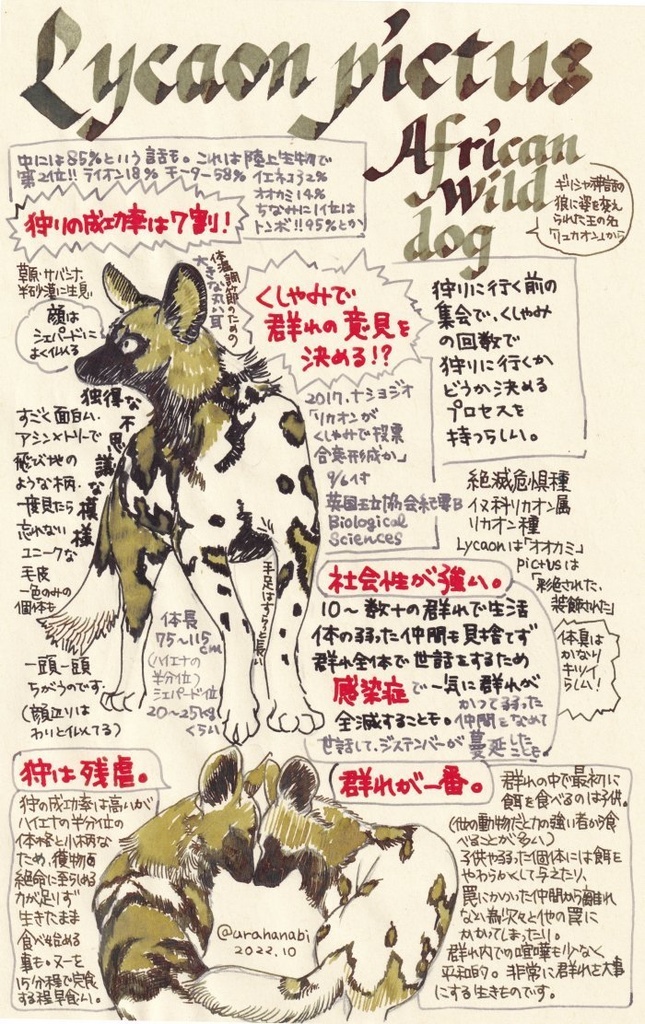 Lycaon pictus
African
wild
dog
中には85%という話も。これは陸上生物で
第2位!! ライオン18% モーター58% イエネコ32%
オオカミ14%
ちなみに1位は
トンボ!!95%とか
狩りの成功率は7割!
ギリシャ神話の
狼に姿を変え
られた王の名
「リュカオン」から
草原・サバンナ、
半砂漠に生息
顔は
シェパードに
よく似てる
体温調節のための
大きな丸い耳
くしゃみで
群れの意見を
決める!?
狩りに行く前の
集会で、くしゃみ
の回数で
狩りに行くか
どうか決める
プロセスを
持つらしい。
2017.ナショジオ
「リカオンが
くしゃみで投票
合意形成か」
9/6付
英国王立協会紀要B
Biological
Sciences
独得な不思議な模様
すごく面白い、
アシンメトリーで
飛び地の
ような柄.
一度見たら
忘れない
ユニークな
毛皮
一色のみの
個体も
一頭一頭
ちがうのです
(顔辺りは
わりと似てる)
絶滅危惧種
イヌ科リカオン属
リカオン種
Lycaonは「オオカミ」
pictusは
「彩色された、
装飾された」
手足はすらっと長い
体長
75~115
cm
(ハイエナの
半分位)
シェパード位
20~25kg
くらい
社会性が強い。
10~数十の群れで生活
体の弱った仲間も見捨てず
群れ全体で世話をするため
感染症で一気に群れが
全滅することも。
かつて弱った
仲間をなめて
世話して、ジステンパーが蔓延したことも
体臭は
かなり
キツイ
らしい!
狩は残虐。
狩りの成功率は高いが
ハイエナの半分位の
体格と小柄な
ため、獲物を
絶命に至らめる
力が足りず
生きたまま
食べ始める
事も。ヌーを
15分程で完食
する程早食い。
群れが一番。
群れの中で最初に
餌を食べるのは子供。
(他の動物だと力の強い者から食
べることが多い)
子供や弱った個体には餌を
やわらかくして与えたり、
罠にかかった仲間から離れ
ない為次々と他の罠に
かかてしまったり。
群れ内での喧嘩も少なく
平和的。非常に群れを大事
にする生きものです。
@urahanabi
2022.10